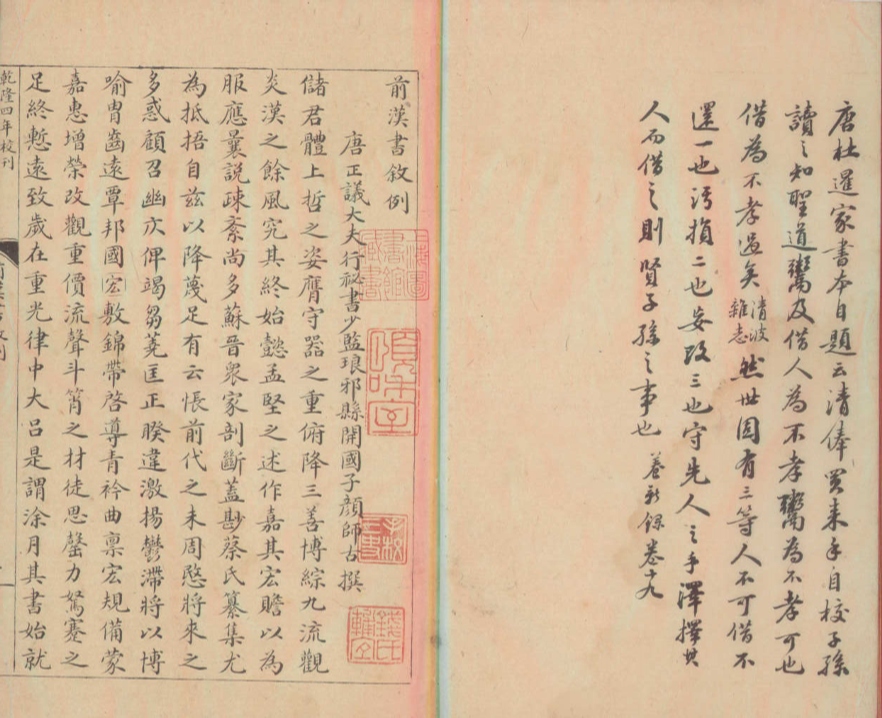 唐杜暹家書本自題云清俸買来手自校子孫
讀之知聖道鬻及借人為不孝鬻為不孝可也
借為不孝過矣清波雜志然世固有三等人不可借不
還一也污損二也妄改三也守先人之手澤擇其
人而借之則賢子孫之事也 養新錄卷十九
前漢書敘例
唐正議大夫行祕書少監琅邪縣開國子顏師古撰
儲君體上哲之姿膺守器之重俯降三善博綜九流觀
炎漢之餘風究其終始懿孟堅之述作嘉其宏贍以為
服應曩説疎紊尚多蘇晉衆家剖斷蓋尠蔡氏纂集尤
為抵捂自兹以降蔑足有云悵前代之未周愍將來之
多惑顧召幽仄俾竭芻蕘匡正睽違激揚鬱滯將以博
喻胄齒遠覃邦國宏敷錦帶啓導青衿曲稟宏規備蒙
嘉惠增榮改觀重價流聲斗筲之材徒思罄力駑蹇之
足終慙遠致歲在重光律中大呂是謂涂月其書始就
乾隆四年校刊
上海圖書館藏書